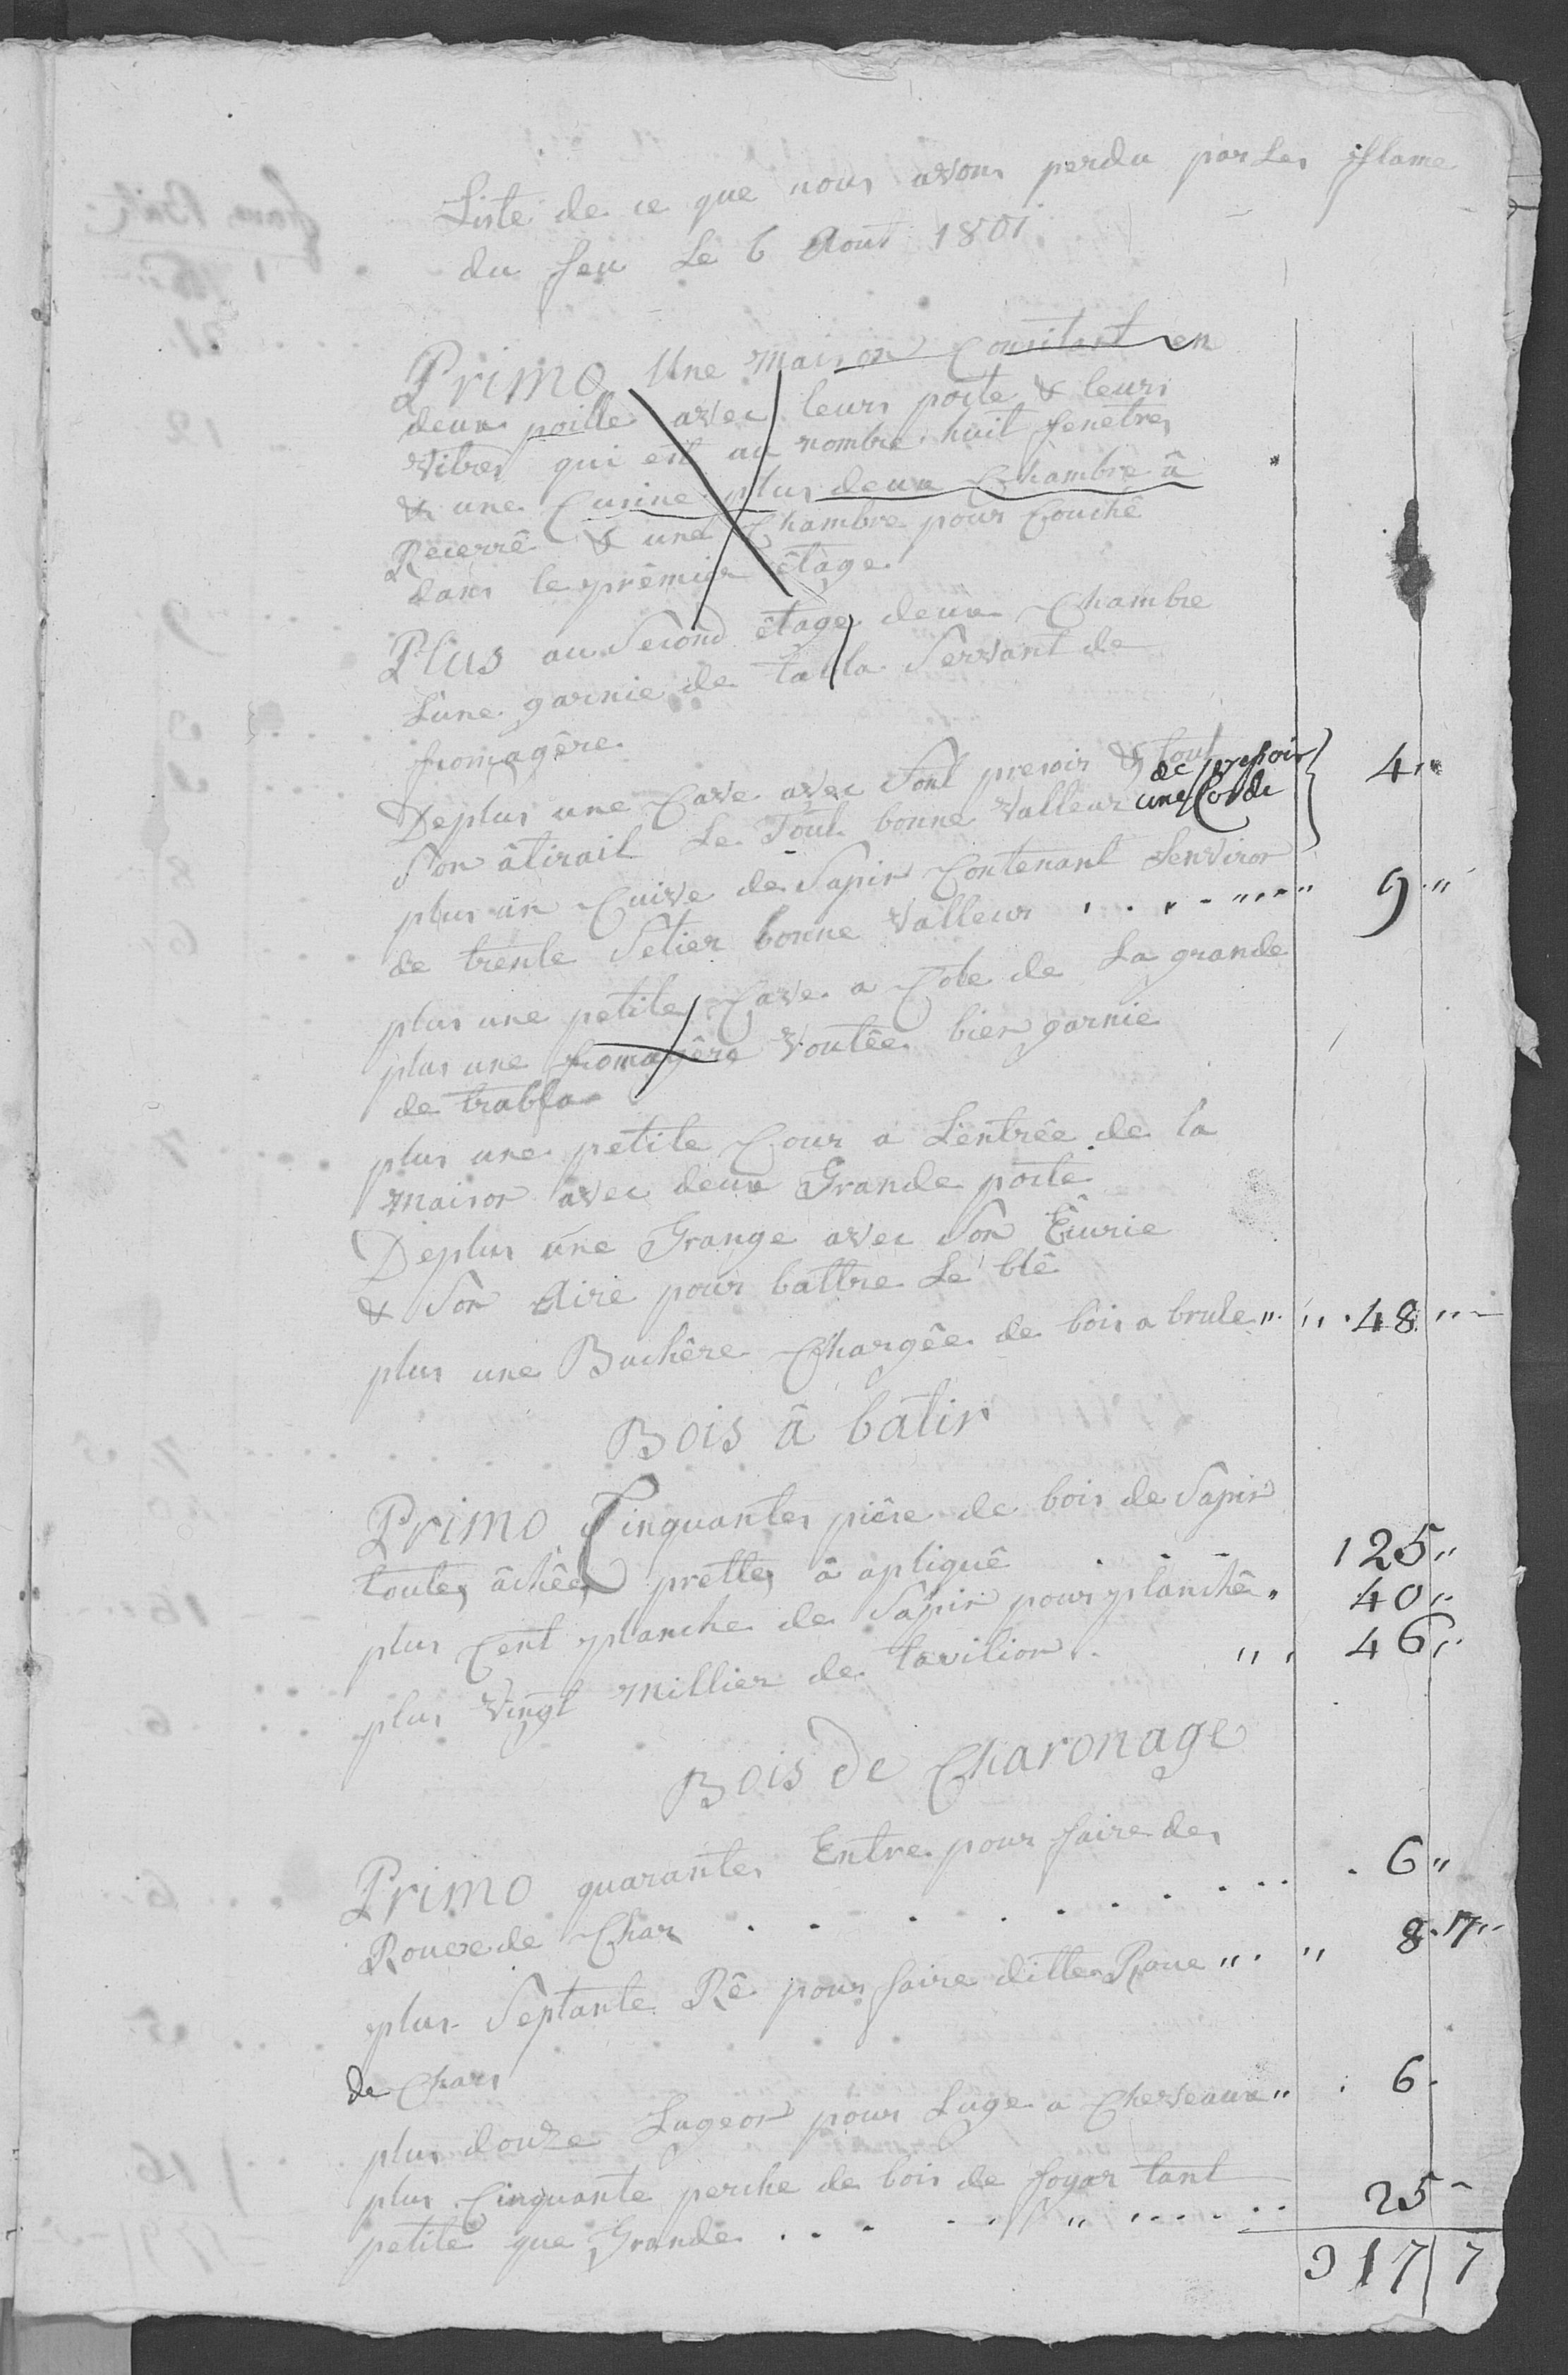 Liste de ce que nous avons perdu par Les fflame
du feu Le 6 Aout 1801
Primo Une maison Consitant en
deux poille avec leurs porte & leurs
Vitres qui est au nombre huit fenêtres
& une Cusine plus deux Chambre â
Recerrê & une Chambre pour Couchê
dans le prêmier êtage
Plus au Second êtage deux Chambre
Lune garnie de tabla Servant de
fromagêre
Deplus une Cave avec Sont presoir & tout
Son âtirail Le Tout bonne Valleur de presoir une Corde 4 "
plus un Cuive de Sapin Contenant Lenviron
de trente Setier bonne Valleur . . . . " " " 9 "
plus une petite Cave a Cote de La grande
plus une fromagêre Voutêe bien garnie
de trabla
plus une petite Cour a Lentrêe de la
maison avec deux Grande porte
Deplus une Grange avec Son Êurie
& Son Aire pour battre Le blê
plus une Buchêre Chargêe de bois a brule " . " . 48 "
Bois â bâtir
Primo Cinquantes piêse de bois de Sapin
toutes âchêes prettes â apliquê . - - 125 "
plus Cent planche de Sapin pour planchê " 40 "
plus Vingt millier de tavilion . " . 46 "
Bois de Charonage
Primo quarantes Entre pour faire des
Rouee de Char . . . . . . . . . . 6 "
plus Septante Rê pour faire ditte Roue " . " 8 . 7 "
de Chars
plus douze Lugeon pour Luge a Cheveaux " . 6 .
plus Cinquante perche de bois de foyar tant
petite que Grande . . . . . " . . . . . 25 -
317 7